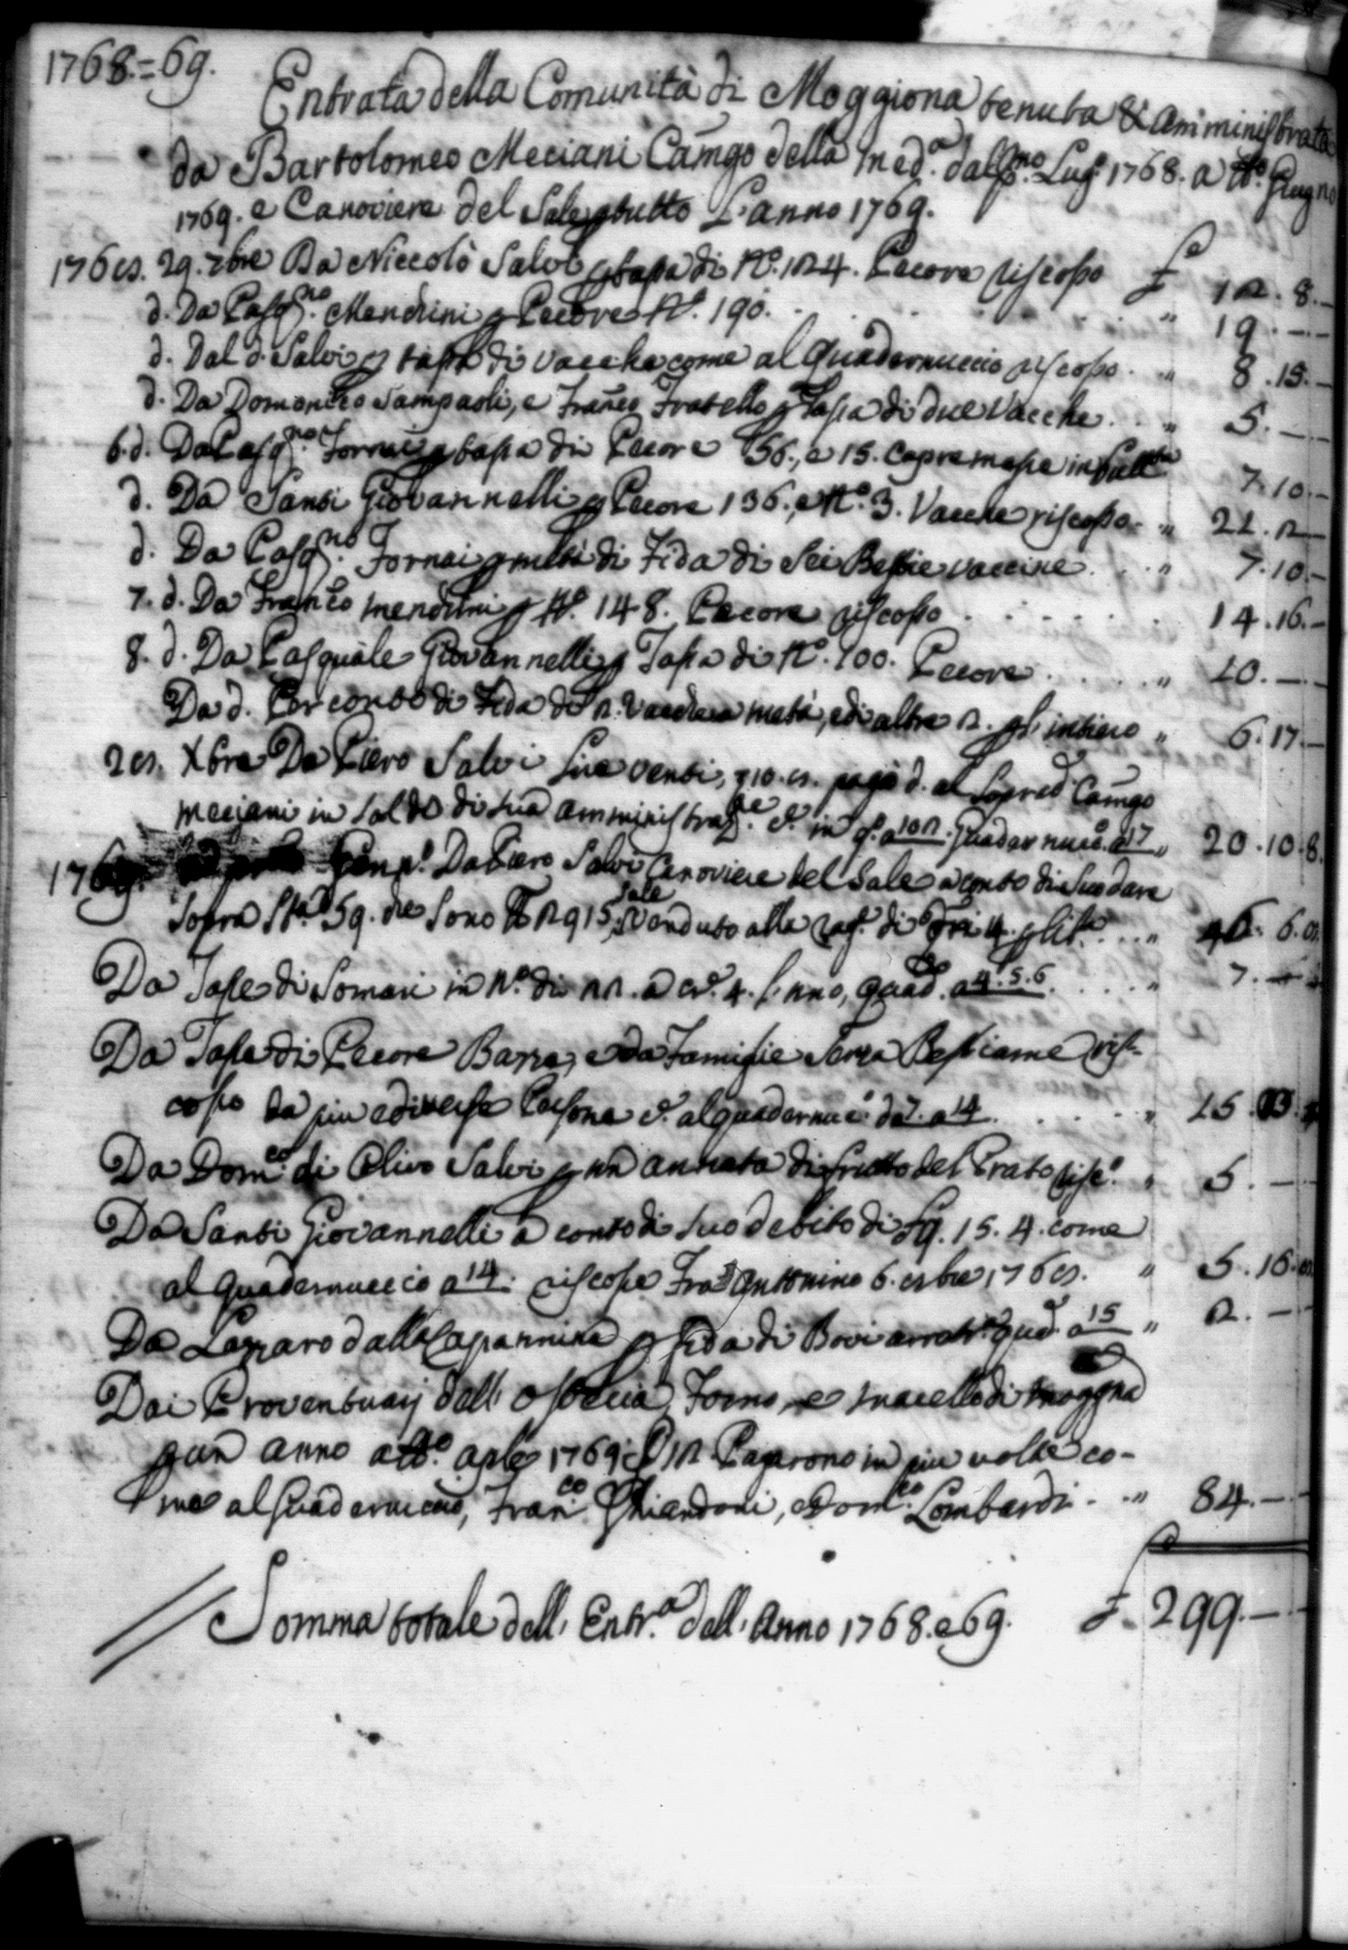 1768.=69.
Entrata della Comunità di Moggiona tenuta & amministrata
da Bartolomeo Meciani Camgo della med.a dal pmo. Lug. 1768. a tto. Giugno
1769. e Canoviere del Sale p tutto L'anno 1769.
1768. 29. 7bre Da Niccolò Salvi p tassa di No. 124. Pecore riscosso £ 12. 8.-
d. Da Pasq.no Mendrini p Pecore No. 190. " 19.-
d. Dal d. Salvi p tassa di vacche come al Quadernuccio riscosso. " 8. 15.-
d. Da Domenico Sampaoli, e Franco Fratello p Tassa di due Vacche. " 5.-
6. d. Da Pasq.no Fornai p tassa di Pecore 56., e 15. Capre messe in 7. 10.-
d. Da Santi Giovannelli p Pecore 136., e No. 3. Vacche riscosso. " 21. 2
d. Da Pasq.no Fornai p metà di Fida di Sei Bestie vaccine. " 7. 10.-
7. d. Da Franco mendrini p No. 148. Pecore riscosso " 14. 16.-
8. d. Da Pasquale Giovannelli p Tassa di No. 100. Pecore. " 10.-
Da d. Per conto di Fida di 2. Vacche a metà, e di altre 2. p l'intiero " 6. 17.-
28. Xbre Da Piero Salvi Lire venti, pagò d. al Soprad. Camgo
meciani in Saldo di sua amministraz.ne in a 102. Quadernuc.o a 17 " 20. 10. 8.
1769. Genn.o Da Piero Salvi Canoviere del Sale a conto di Suo dare
Sopra Sta 59. che Sono 2915. Sale Venduto alla rag.e di 4. p lib.a " 46. 6. 8
Da Tasse di Somari in No. di 4. l'uno, Quad. a 4. 5. 6. " 7.
Da Tasse di Pecore Bazza, e da Famiglie Senza Bestiame ris-
cosso da piu e diverse Persone al quadernuc. da 7. a 14. " 15.
Da Dom.co di Olivo Salvi p un annata di frutto del Prato risc.o " 5.-
Da Santi Giovannelli a conto di Suo debito di 59. 15. 4. come
al Quadernuccio a 14. riscosse Fra Antonino 6. 8bre 1768. " 5. 16. 8
Da Lazzaro dalla Capannina p fida di Bovi Quad. a 15 " 2.-
Dai Proventuarj dell'Osteria, Forno, e macello di moggna
p un anno a tto. aple 1769. Pagarono in piu volte co-
me al Quadernuccio, Fran.co Ghiandoni, e Dom.co Lombardi. " 84.-
Somma totale dell'Entr.a dell'Anno 1768. e 69. £ 299.-